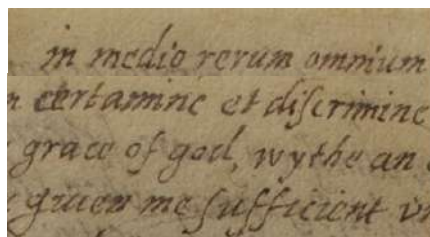 in medio rerum omnium
certamine et discrimine
grace of god, wythe an
giuen me sufficient